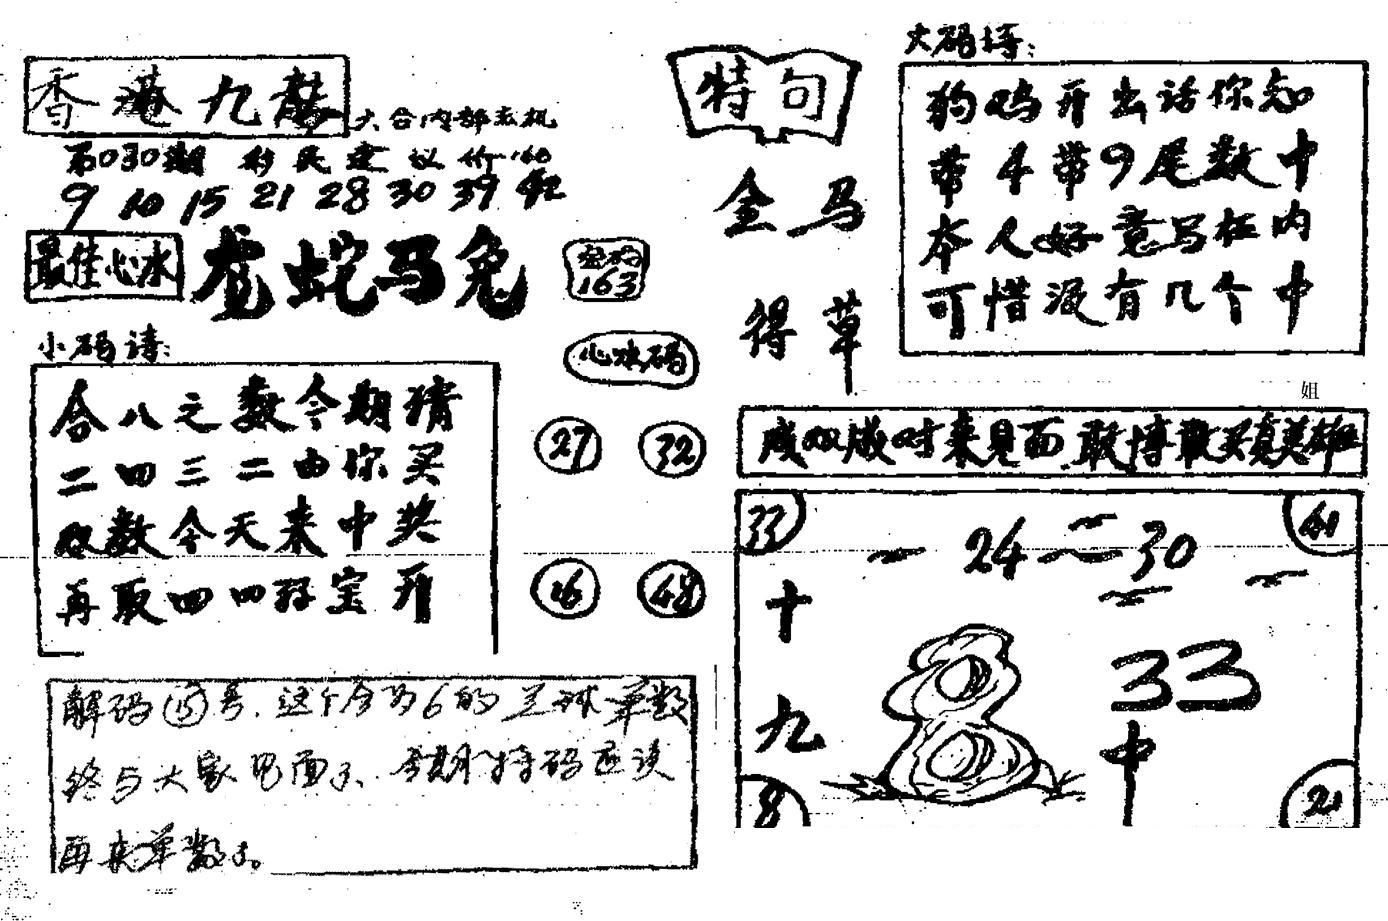 香港九龙
六合内部玄机
第030期 彩民建议价160
9 10 15 21 28 30 39 42
最佳心水
龙蛇马兔
叁码
163
小码诗:
合八之数今期猜
二四三二由你买
双数今天来中奖
再取四四好宝开
心水码
27 32
16 48
解码(15)号.这个合为6的兰球单数
终与大家见面了、今期特码应该
再来单数了。
特句
金马
得草
大码诗:
狗鸡开出话你知
带4带9尾数中
本人好意写在内
可惜没有几个中
姐
成双成对来见面 敢博敢买真英雄
33 41
24 30
十九
33
中
8 21